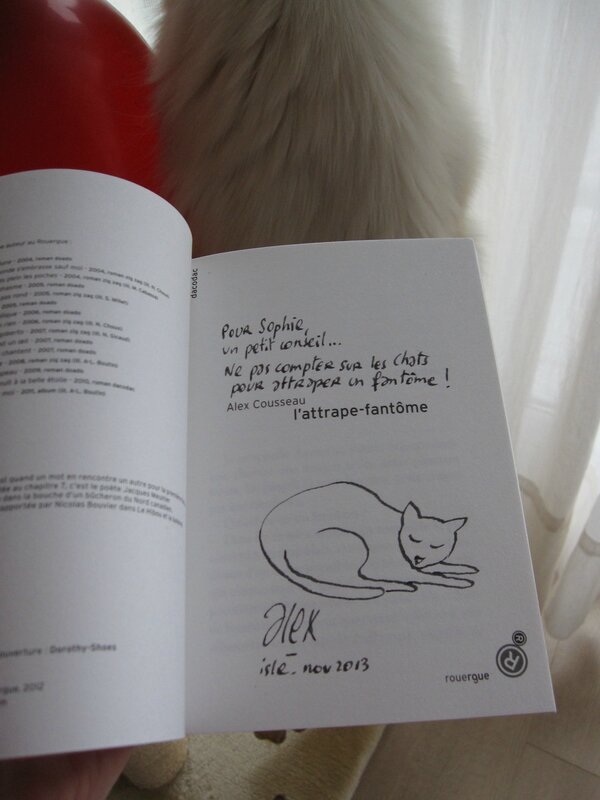 e auteur au Rouergue :
une - 2004, roman doado
onde s'embrasse sauf moi - 2004, roman zig zag
plein les poches - 2004, roman zig zag
2005, roman doado
son rond - 2005, roman zig zag
2005, roman doado
2006, roman doado
rien - 2006, roman zig zag
- 2007, roman zig zag (ill. N. Giraud)
un œil - 2007, roman doado
chantent - 2007, roman doado
- 2008, roman zig zag
- 2009, roman doado
nuit à la belle étoile - 2010, roman dacodac
moi - 2011, album (ill. A-L. Boutin)
est quand un mot en rencontre un autre pour la première
ée au chapitre 7, c'est le poète Jacques
dans la bouche d'un bûcheron du Nord canadien,
apportée par Nicolas Bouvier dans Le Hibou et la baleine
ouverture : Dorothy-Shoes
rgue, 2012
dacodac
Pour Sophie,
un petit conseil...
Ne pas compter sur les chats
pour attraper un fantôme !
Alex Cousseau
l'attrape-fantôme
alex
nov 2013
rouergue
R